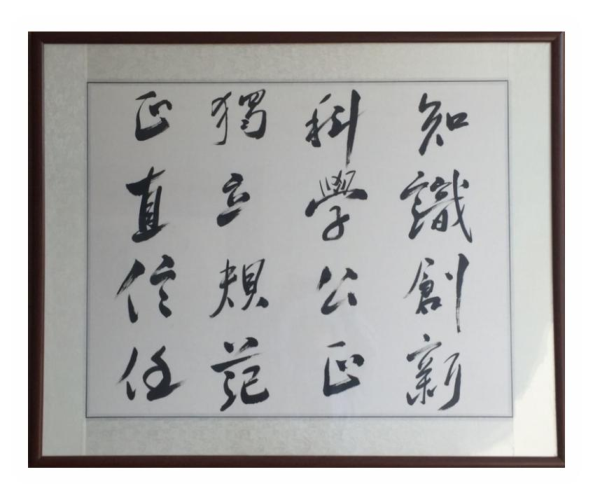 知識創新
科學公正
獨立規範
正直信任